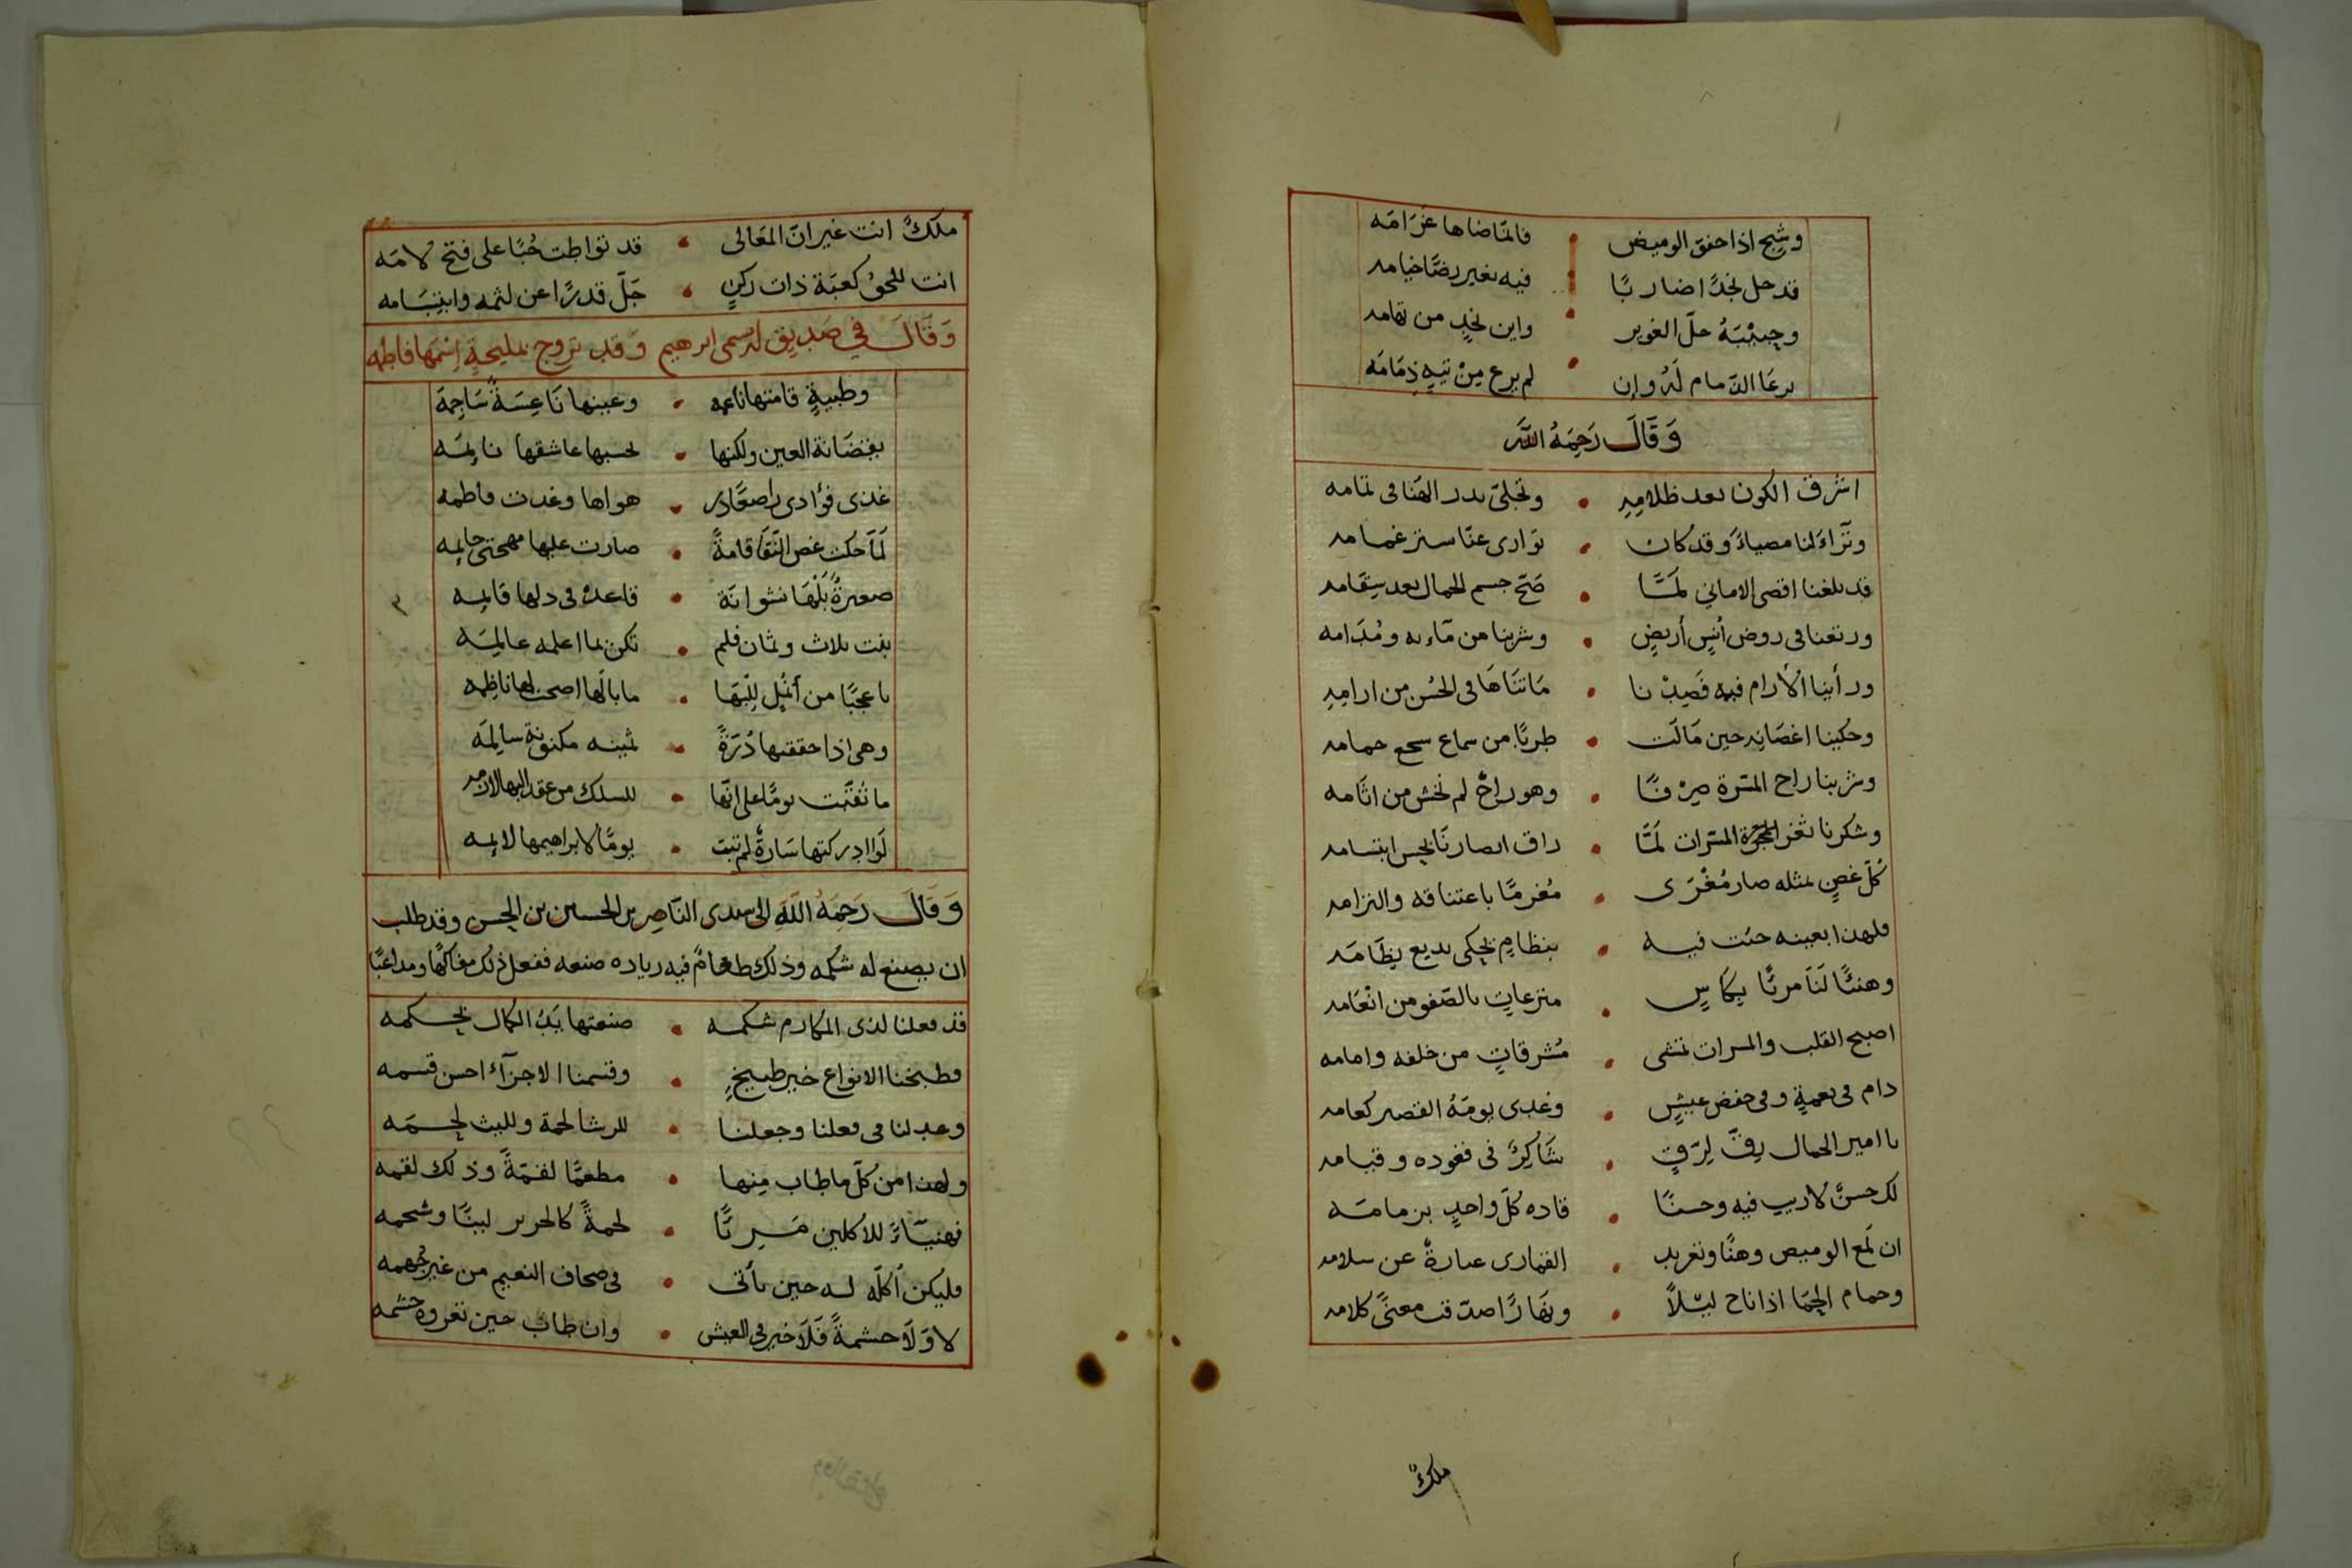 وشج اذا خفق الوميض • فالمّاضاها غَرَامَه
قد حل نجدًا ضاربًا • فيه بغير رضًا خيامه
وحبيْبَهُ حلّ الغوير • واين نجدٍ من تهامه
يرعَا الذمام لَهُ وان • لم يرع مِنْ تيهٍ ذِمَامَه
وَقَالَ رَحِمَهُ اللَّه
اشرق الكون بعد ظلامِهِ • وتجلىّ بدر الهَنا فى تمامه
وتَرَاءَ لنا مضياءً وقد كان • توارى عنّا ستر غمامه
قد بلغنا اقصى الاماني لَمَّا • صَحّ جسم الجمال بعد سِقَامه
ورتعنا فى روض أنيسٍ أريضٍ • وشربنا من مآءِه ومُدَامه
ورأينا الأرام فيه فَصِدْنا • مَا تَنَاهَا فى الحُسْن من ارامِهِ
وحكينا اغصَانِه حين مَالَت • طربًا من سماع سجع حمامه
وشربنا راح المسّرة صِرْفًا • وهو راحٌ لم نخش من اثَامه
وشكرنا ثغر المسّرات لَمَّا • راق ابصارنَا بحسن ابتسامه
كُلّ غصنٍ بمثله صار مُغْرَى • مُغرمًا باعتناقه والتزامه
فلهذا بعينه جئت فيه • بنظامٍ يحكى بديع نِظَامَه
وهنئًا لَنَا مرئًا بِكَاسٍ • منزعاتٍ بالصّفو من انْعَامه
اصبح القلب والمسرات تمشى • مُشرقاتٍ من خلفه وامامه
دام فى نعمةٍ وفى خفض عيشٍ • وغدى يومَهُ القصير كعامه
يا امير الجمال رِقّ لِرَقٍ • شَاكِرٌ فى قعوده وقيامه
لك حسنٌ لا ريب فيه وحسنًا • قاده كلّ واحدٍ بزمامَه
ان لَمع الوميض وهنًا وتغريد • القمارى عبارةٌ عن سلامه
وحمام الحِمَا اذا ناح ليْلاً • ونهارًا صدّقت معنىً كلامه
ملكٌ
ملكٌ انت غير انّ المعَالى • قد تواطت حُبًا على فتح لامَه
انت للحقُ كعبَة ذات ركنٍ • جَلّ قدرًا عن لثمه وابتِسَامه
وَقَالَ في صَدِيق له اسمى ابرهيم وَقد تزوج بمليحةٍ اِسْمَهَا فاطمه
وظبيةٍ قامتها ناعمه • وعينها نَاعِسَةٌ سَاجِمَة
يقضَانة العين ولكنها • يحسبها عاشقها نايمَه
غذى فؤادى راضعًا در • هواها وغدت فاطمه
لَمّا حكت غصن النّقَا قامةً • صارت عليها مهجتى حايمه
صغيرةٌ بَلْهَا نشوانَة • قاعدةٌ فى دلها قايمه
بنت ثلاث وثمان فلم • تكن بما اعلمه عالمِيَه
يا عجبًا من أنمُلٍ لِلْبَهَا • ما بالَها اصحت لها ناظِمه
وهى اذا حققتها دُرَةً • ثمينه مكنونة سالِمَه
ما ثُقّبت يومًا على انّها • للسلك من عقد البها لازمه
لَو ادركتها سَارةٌ لم تبت • يومًا لابراهيمها لايمه
٣
وَقَالَ رَحِمَهُ اللَّهِ الى سيدى النّاصِر بن الحسين بن الحسن وقد طلب
ان يصنع له شكمه وذلك طعامٌ فيه زياده صنعه ففعل ذلك مفاكهًا ومداعبًا
قد فعلنا لذى المكارم شكمه • صنعتها يَدُ الكمال بحكمه
وطبخنا الانواع خير طبيخٍ • وقسمنا الاجزآء احسن قسمه
وعدلنا فى فعلنا وجعلنا • للرشا لحمة ولليث لحمَه
ولهذا من كلّ ما طاب مِنها • مطعمًا لقمَةً وذلك لقمه
فهنيَآءً للاكلين مَرِئًا • لحمةً كالحرير لينًا وشحمه
وليكن أكلَه له حين يأتى • فى صحاف النعيم من غير تُهمه
لا وَلَا حشمةً فَلَا خير فى العيش • وان طاب حين تعروه حشمه